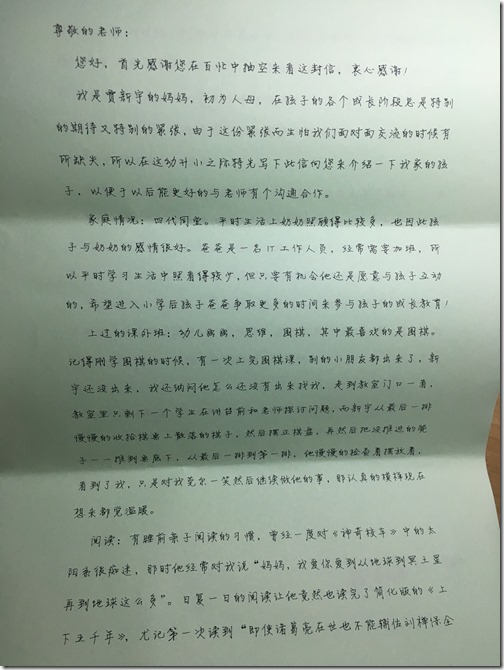 尊敬的老师:
您好,首先感谢您在百忙中抽空来看这封信,衷心感谢!
我是贾新宇的妈妈,初为人母,在孩子的各个成长阶段总是特别
的期待又特别的紧张,由于这份紧张而生怕我们面对面交流的时候有
所缺失,所以在这幼升小之际特先写下此信向您来介绍一下我家的孩
子,以便于以后能更好的与老师有个沟通合作。
家庭情况:四代同堂。平时生活上奶奶照顾得比较多,也因此孩
子与奶奶的感情很好。爸爸是一名IT工作人员,经常需要加班,所
以平时学习生活中照看得较少,但只要有机会他还是愿意与孩子互动
的,希望进入小学后孩子爸爸争取更多的时间来参与孩子的成长教育!
上过的课外班:幼儿 ,思维,围棋,其中最喜欢的是围棋。
记得刚学围棋的时候,有一次上完围棋课,别的小朋友都出来了,新
宇还没出来,我还纳闷他怎么还没有出来找我,走到教室门口一看,
教室里只剩下一个学生在讲台前和老师探讨问题,而新宇从最后一排
慢慢的收拾桌上散落的棋子,然后摆正棋盘,再然后把没推进的凳
子一一推到桌底下,从最后一排到第一排,他慢慢的检查着摆放着,
看到了我,只是对我莞尔一笑然后继续做他的事,那认真的模样现在
想来都觉温暖。
阅读:有睡前亲子阅读的习惯,曾经一度对《神奇校车》中的太
阳系很痴迷,那时他经常对我说“妈妈,我爱你爱到从地球到冥王星
再到地球这么多”。日复一日的阅读让他竟然也读完了简化版的《上
下五千年》,尤记第一次读到“即使诸葛亮在世也不能辅佐刘禅保全